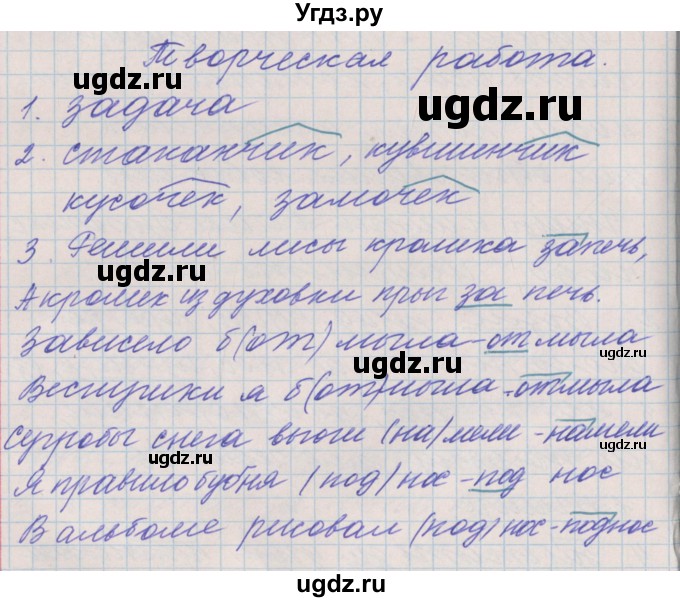 Угдз.ру
Творческая работа.
1. задача
2. стаканчик, кувшинчик
кусочек, замочек
3. Решили лисы кролика запечь,
А кролик из духовки прыг за печь.
Зависело б(от) мыла - от мыла
Веснушки я б(от)мыла - отмыла
Сугробы снега вьюги (на)мели - намели
Я правило бубня (под) нос - под нос
В альбоме рисовал (под) нос - поднос
ugdz.ru
ugdz.ru
ugdz.ru
ugdz.ru
ugdz.ru
ugdz.ru
ugdz.ru
ugdz.ru
ugdz.ru
ugdz.ru